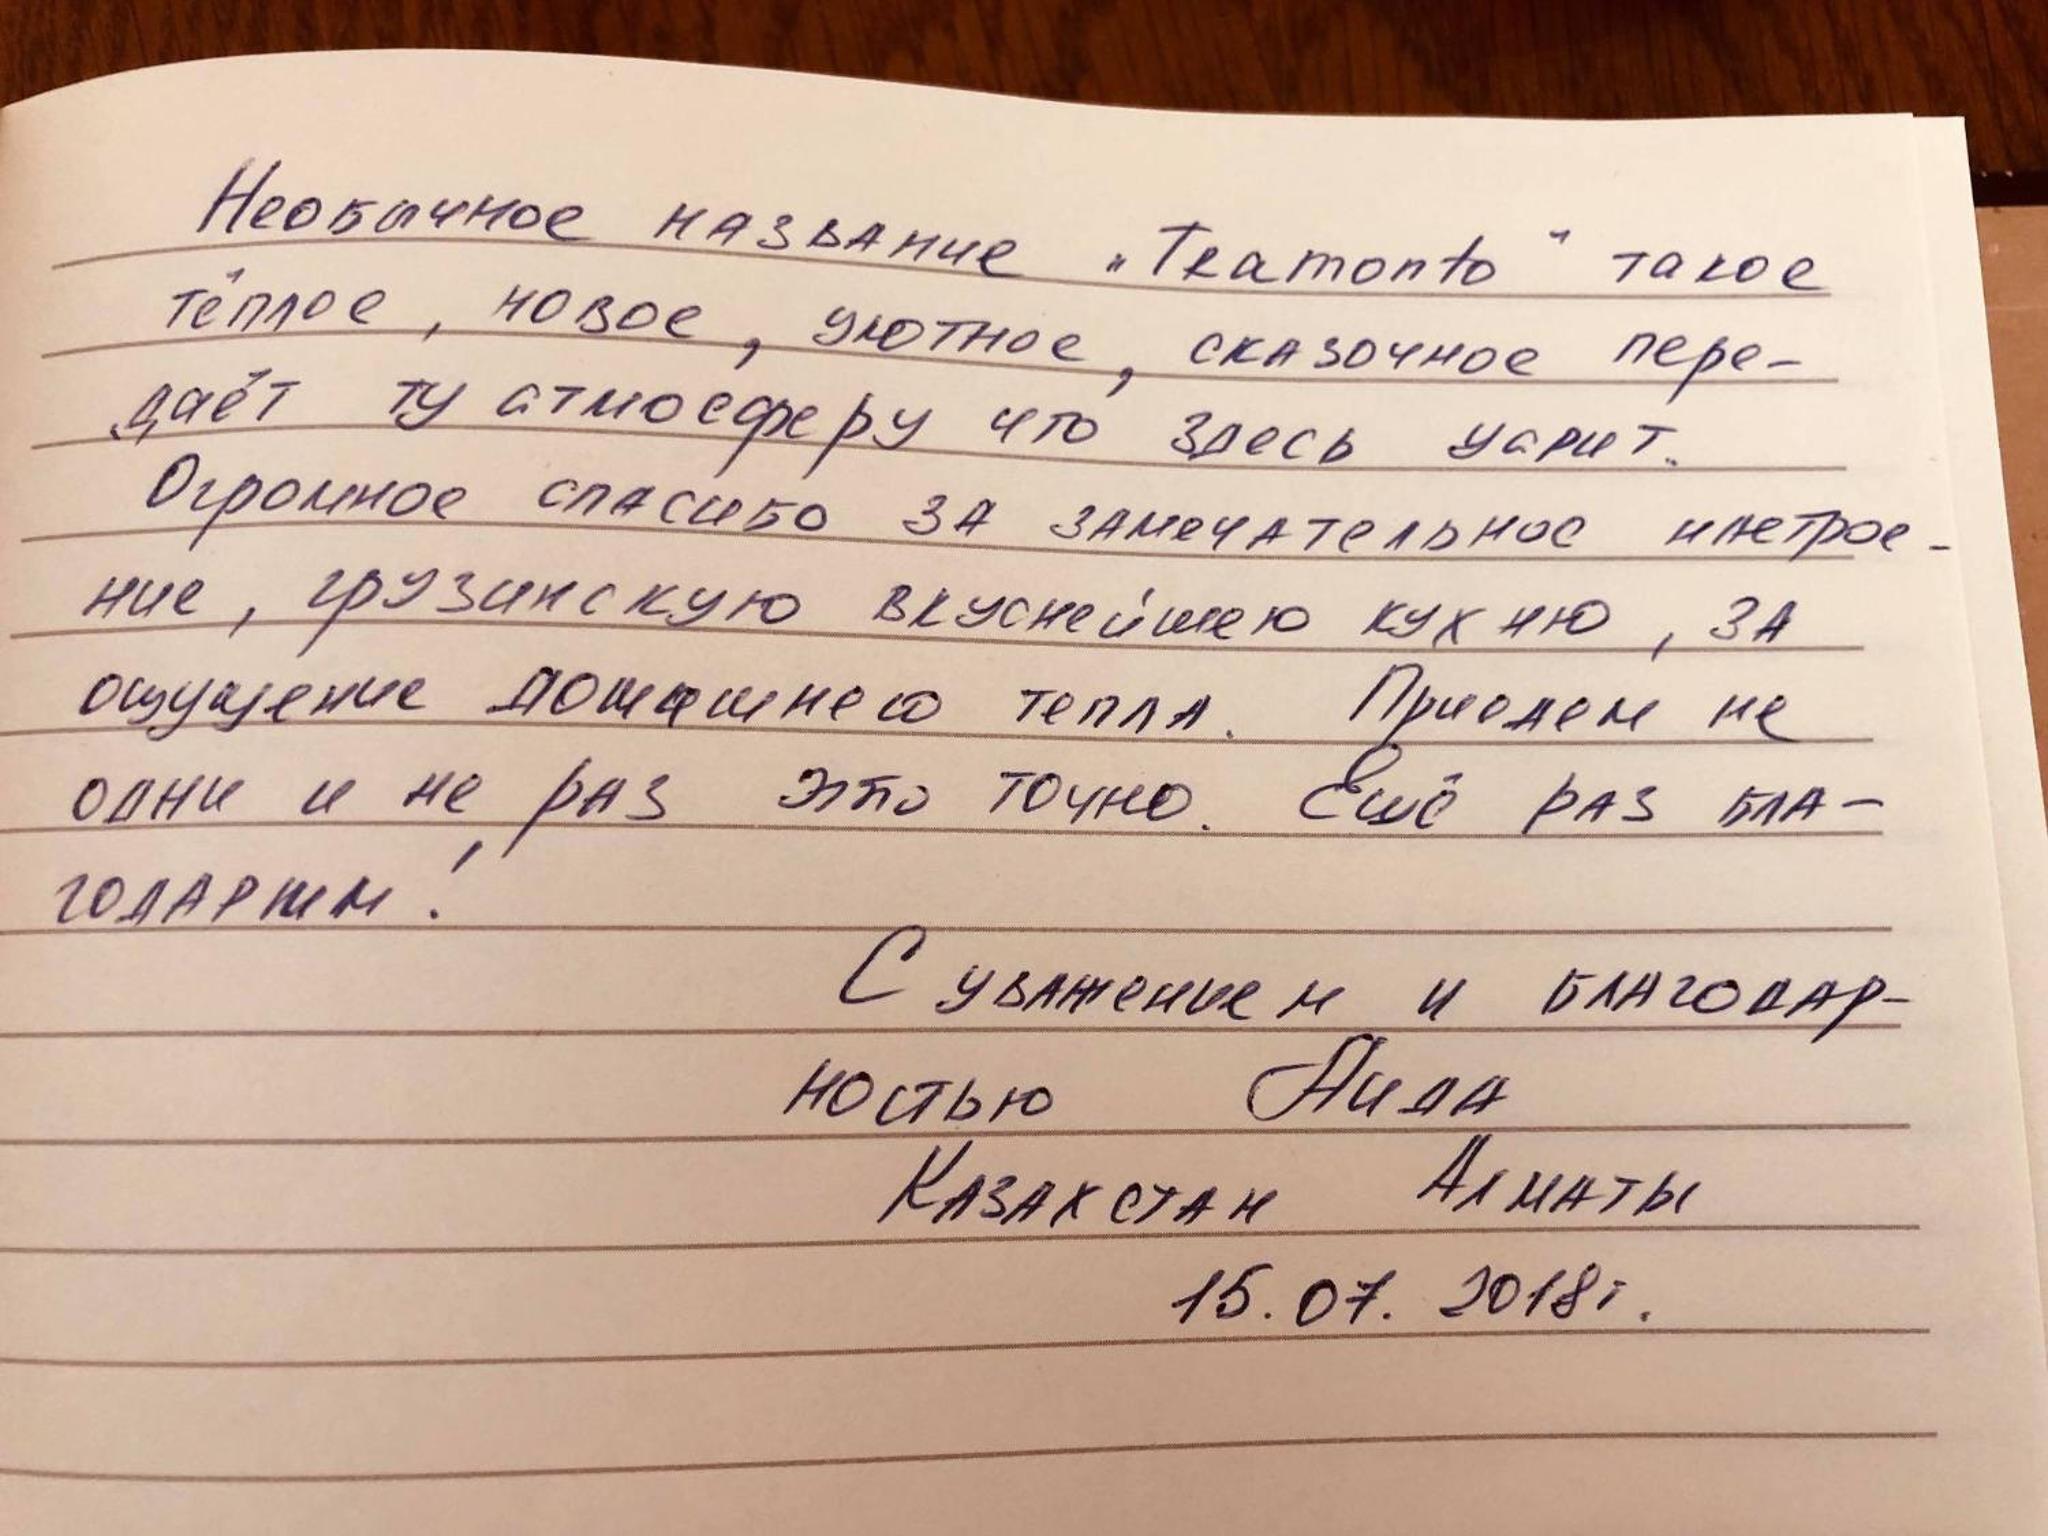 Необычное название „Tramonto" такое
тёплое, новое, уютное, сказочное пере-
даёт ту атмосферу что здесь царит.
Огромное спасибо за замечательное настрое-
ние, грузинскую вкуснейшею кухню, за
ощущение домашнего тепла. Приедем не
одни и не раз это точно. Ещё раз бла-
годарим!
С уважением и благодар-
ностью Аида
Казахстан Алматы
15.07.2018г.